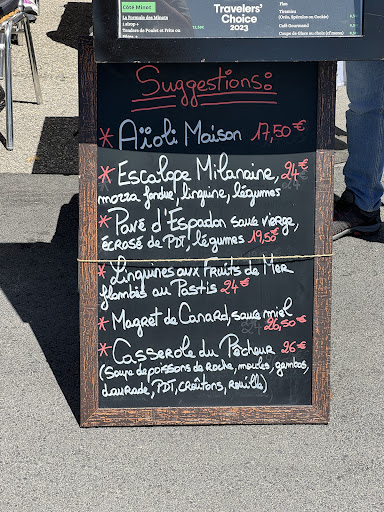 Côté Minot
La formule des Minots
1 sirop +
Tenders de Poulet et Frite ou
12,50€
Travelers'
Choice
2023
Flan
Tiramisu
Café Gourmand
Suggestions:
* Aïoli Maison 17,50€
* Escalope Milanaise, 24€
mozza fondue, linguine, légumes
* Pavé d'Espadon sauce vierge,
écrasé de PDT, légumes 19,50€
* Linguines aux Fruits de Mer
flambées au Pastis 24€
* Magret de Canard, sauce miel
26,50€
* Casserole du Pêcheur 26€
(Soupe de poissons de roche, moules, gambas,
daurade, PDT, croûtons, rouille)